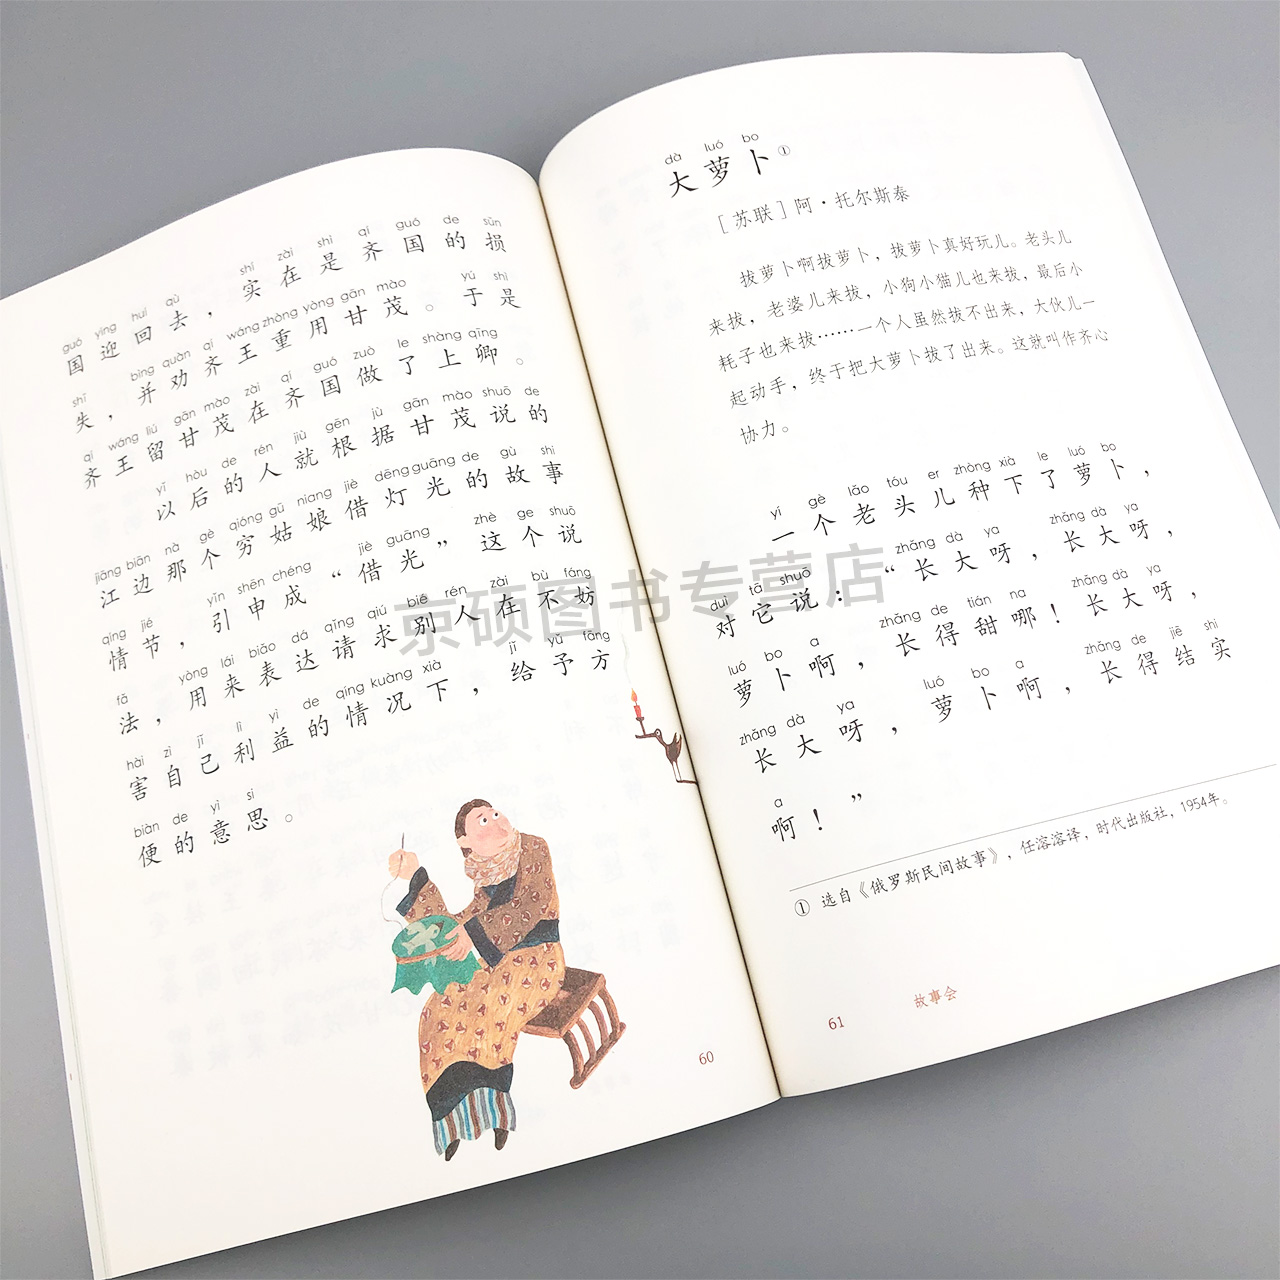 guó yíng huí qù shí zài shì qí guó de sǔn
国迎回去，实在是齐国的损
shī bìng quàn qí wáng zhòng yòng gān mào yú shì
失，并劝齐王重用甘茂。于是
qí wáng liú gān mào zài qí guó zuò le shàng qīng
齐王留甘茂在齐国做了上卿。
yǐ hòu de rén jiù gēn jù gān mào shuō de
以后的人就根据甘茂说的
jiāng biān nà gè qióng gū niang jiè dēng guāng de gù shi
江边那个穷姑娘借灯光的故事
qíng jié yǐn shēn chéng jiè guāng zhè ge shuō
情节，引申成“借光”这个说
fǎ yòng lái biǎo dá qǐng qiú bié rén zài bù fáng
法，用来表达请求别人在不妨
hài zì jǐ lì yì de qíng kuàng xià jǐ yǔ fāng
害自己利益的情况下，给予方
biàn de yì si
便的意思。
60
dà luó bo
大萝卜①
［苏联］阿·托尔斯泰
拔萝卜啊拔萝卜，拔萝卜真好玩儿。老头儿
来拔，老婆儿来拔，小狗小猫儿也来拔，最后小
耗子也来拔……一个人虽然拔不出来，大伙儿一
起动手，终于把大萝卜拔了出来。这就叫作齐心
协力。
yí gè lǎo tóu er zhòng xià le luó bo
一个老头儿种下了萝卜，
duì tā shuō zhǎng dà ya zhǎng dà ya
对它说：“长大呀，长大呀，
luó bo a zhǎng de tián na zhǎng dà ya
萝卜啊，长得甜哪！长大呀，
zhǎng dà ya luó bo a zhǎng de jiē shi
长大呀，萝卜啊，长得结实
a
啊！”
① 选自《俄罗斯民间故事》，任溶溶译，时代出版社，1954年。
61
故事会
京硕图书专营店